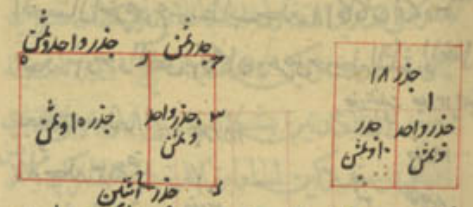 جذر واحد وثمن
جذر ثمن
جذر ١٥ وثمن
جذر واحد
وثمن
٣
جذر اثنين
جذر ١٨
١
جذر واحد
وثمن
جذر
١٠ وثمن